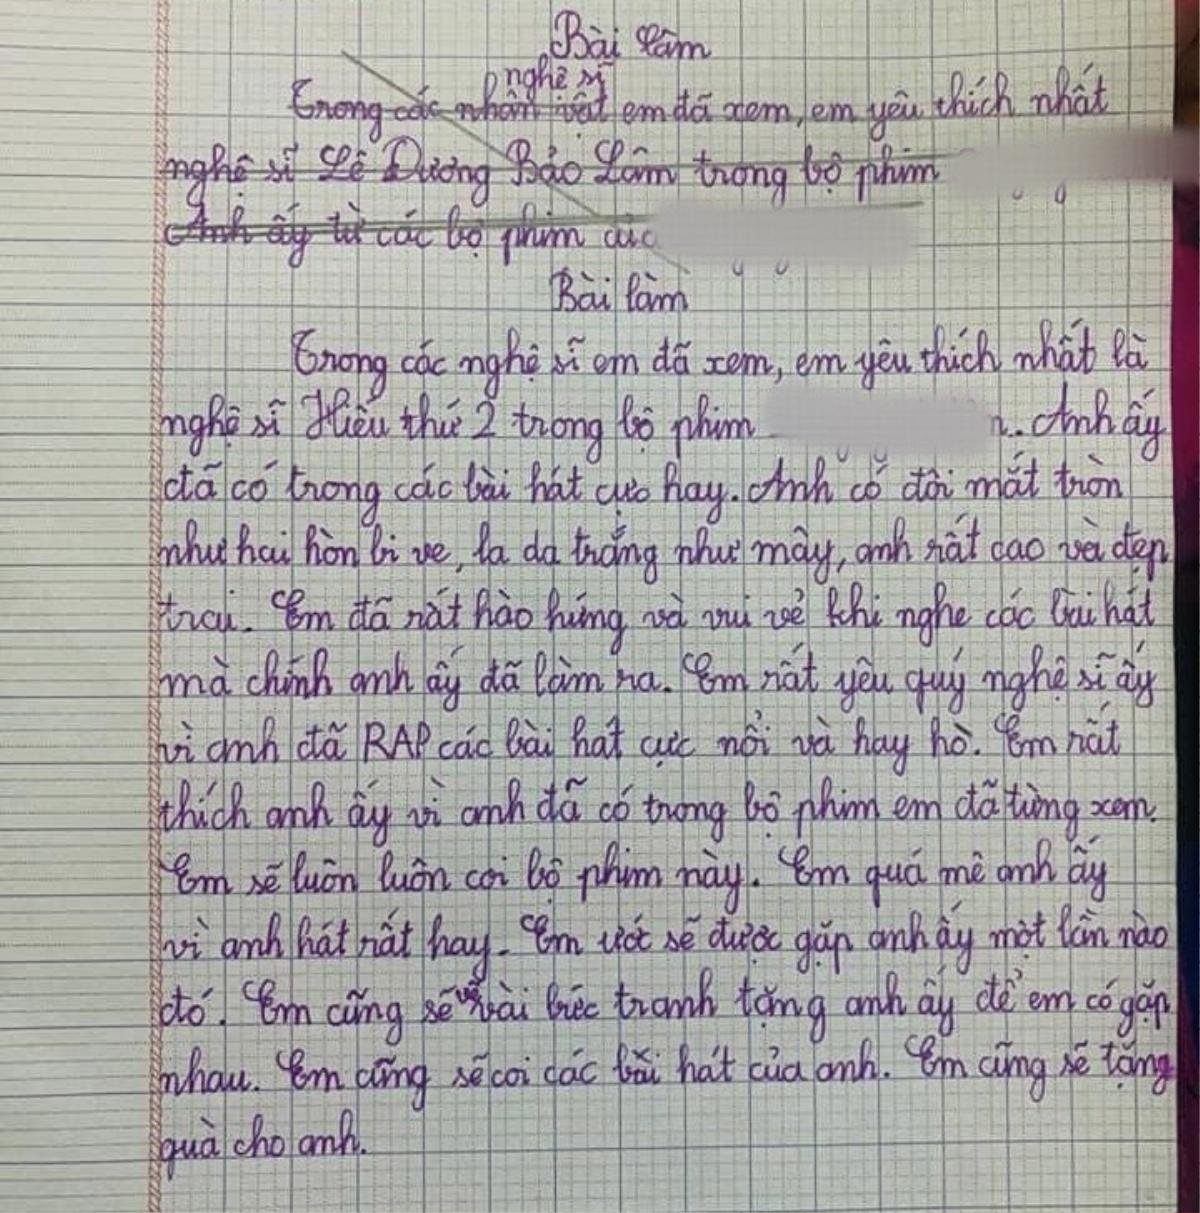 Bài làm
nghệ sĩ
Trong các nhân vật em đã xem, em yêu thích nhất
nghệ sĩ Lê Dương Bảo Lâm trong bộ phim
Anh ấy từ các bộ phim của
Bài làm
Trong các nghệ sĩ em đã xem, em yêu thích nhất là
nghệ sĩ Hiếu thứ 2 trong bộ phim . Anh ấy
đã có trong các bài hát cực hay. Anh có đôi mắt tròn
như hai hòn bi ve, la da trắng như mây, anh rất cao và đẹp
trai. Em đã rất hào hứng và vui vẻ khi nghe các bài hát
mà chính anh ấy đã làm ra. Em rất yêu quý nghệ sĩ ấy
vì anh đã RAP các bài hat cực nổi và hay hò. Em rất
thích anh ấy vì anh đã có trong bộ phim em đã từng xem.
Em sẽ luôn luôn coi bộ phim này. Em quá mê anh ấy
vì anh hát rất hay. Em ước sẽ được gặp anh ấy một lần nào
đó. Em cũng sẽ vẽ vài bức tranh tặng anh ấy để em có gặp
nhau. Em cũng sẽ coi các bài hát của anh. Em cũng sẽ tặng
quà cho anh.